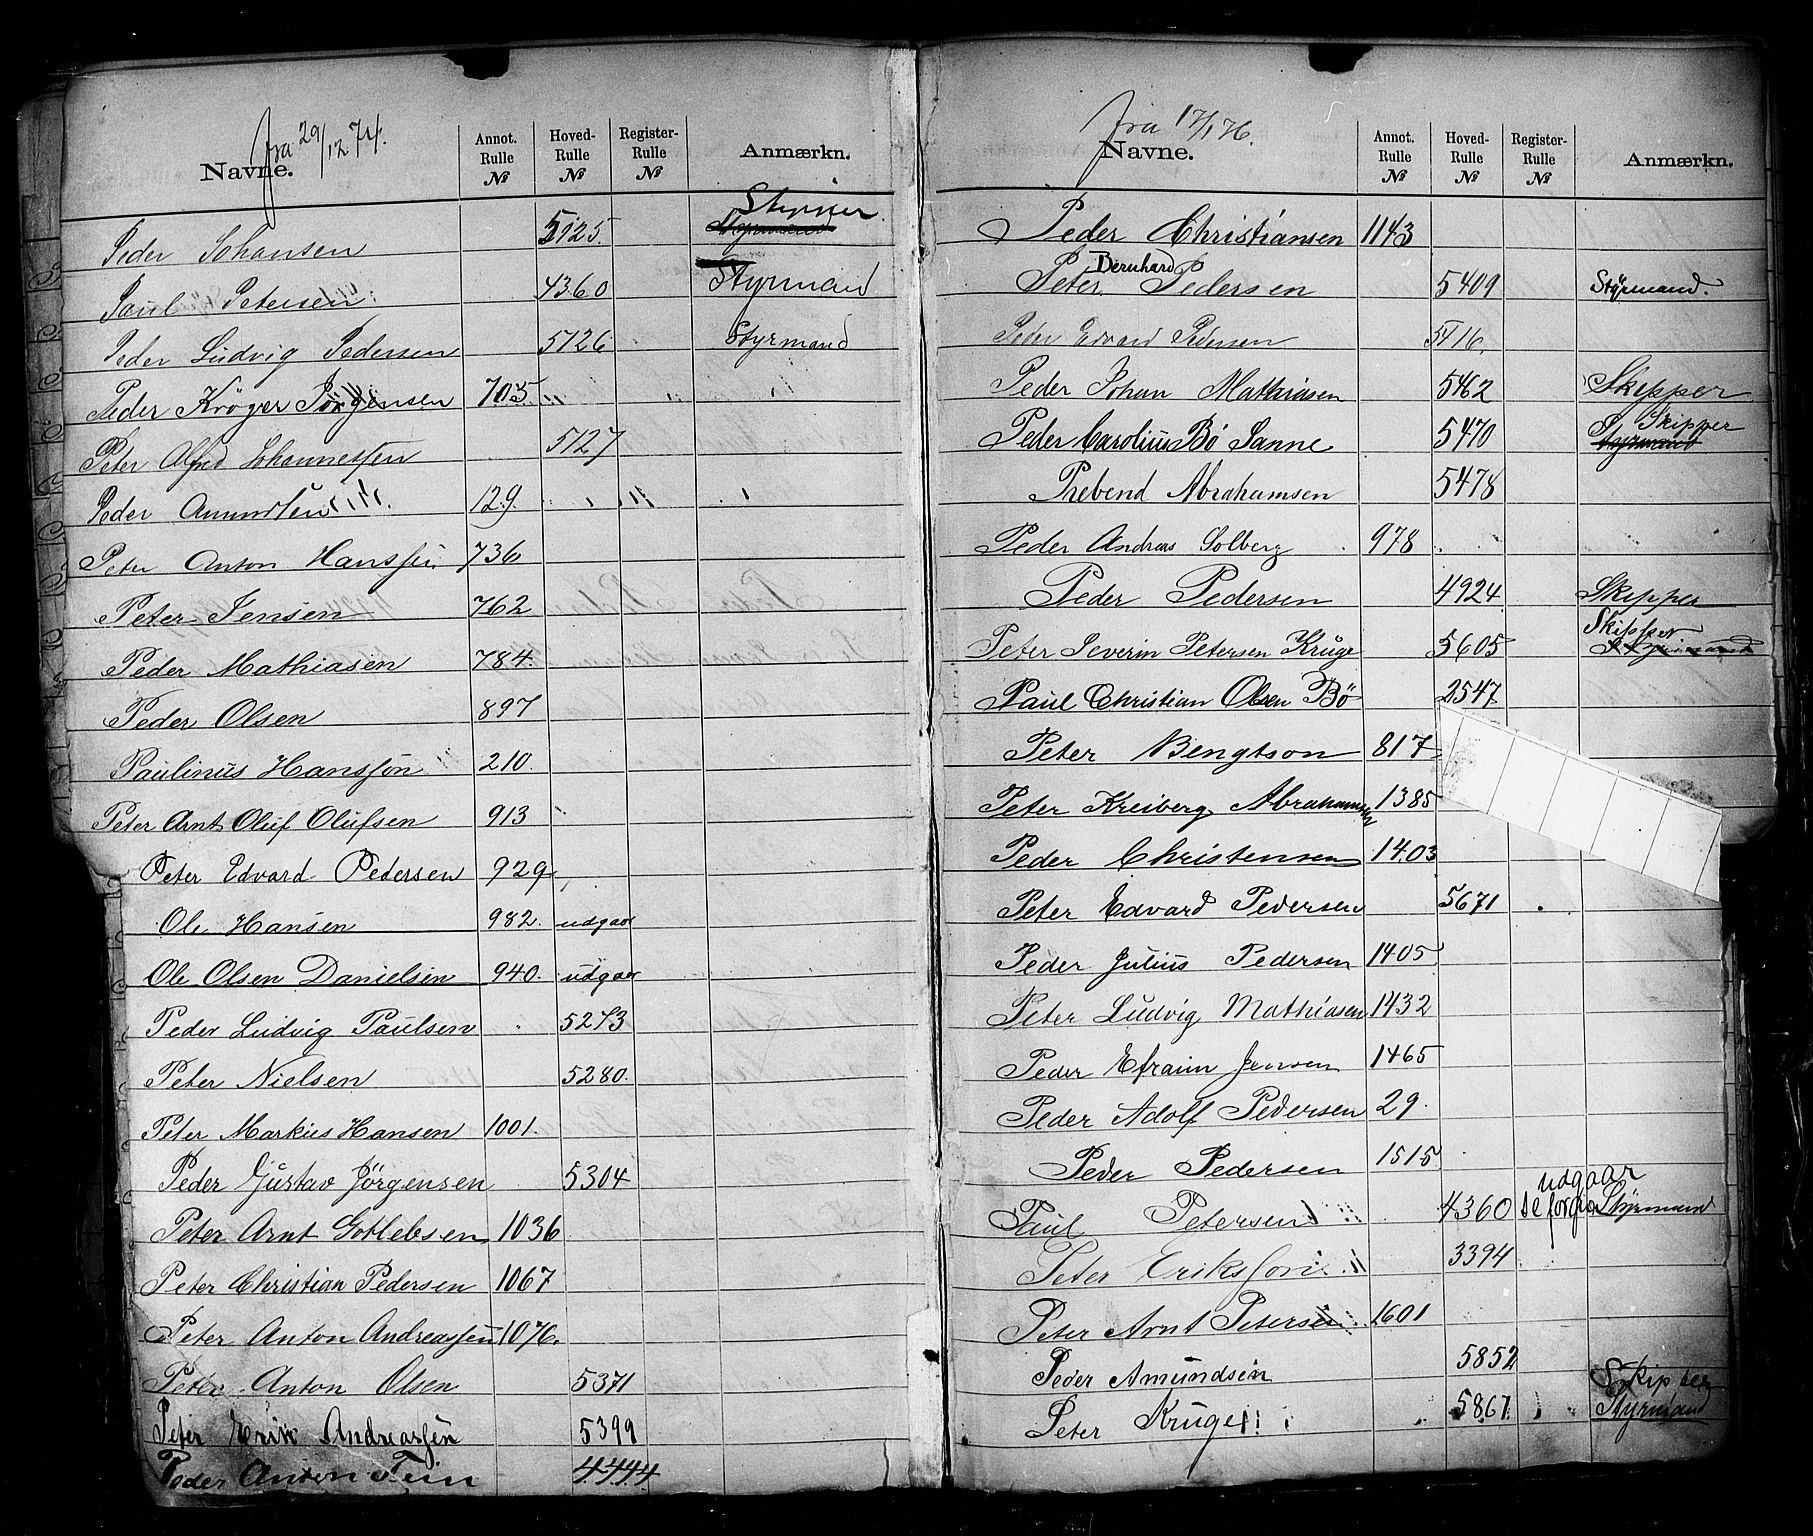 fra 29/12 74.
Navne. Annot. Rulle № Hoved-Rulle № Register-Rulle № Anmærkn.
Peder Johansen 5125. Styrmand
Paul Petersen 4360 Styrmand
Peder Ludvig Pedersen 5126 Styrmand
Peder Kröger Jörgensen 705
Peter Alfred Johannessen 5127
Peder Amundsen 129.
Peter Anton Hanssen 736
Peter Jensen 762
Peder Mathiasen 784.
Peder Olsen 897
Paulinus Hansson 210.
Peter Arnt Oluf Olufsen 913
Peter Edvard Pedersen 929
Ole Hansen 982. udgaar
Ole Olsen Danielsen 940. udgaar
Peder Ludvig Paulsen 5273
Peter Nielsen 5280.
Peter Markus Hansen 1001.
Peder Gustav Jörgensen 5304
Peter Arnt Gotlebsen 1036
Peter Christian Pedersen 1067
Peter Anton Andreassen 1076.
Peter Anton Olsen 5371
Peter Erik Andreassen 5399
Peder Anton 4444
fra 17/1 76.
Navne. Annot. Rulle № Hoved-Rulle № Register-Rulle № Anmærkn.
Peder Christiansen 1143
Peter Bernhard Pedersen 5409 Styrmand.
Peder Edvard Pedersen 5416.
Peder Johan Mathiasen 5462 Skipper
Peder Carolius Bö Sanne 5470 Skipper Styrmand
Prebend Abrahamsen 5478
Peder Andreas Solberg 978
Peder Pedersen 4924 Skipper
Peter Severin Petersen Kruge 5605 Skipper Styrmand
Paul Christian Olsen Bö 2547
Peter Bengtson 817
Peter Kreiberg Abrahamsen 1385
Peder Christensen 1403
Peter Edvard Pedersen 5671
Peder Julius Pedersen 1405
Peter Ludvig Mathiasen 1432
Peder Efraim Jensen 1465
Peder Adolf Pedersen 29.
Peder Pedersen 1515
Paul Petersen 4360 udgaar Styrmand
Peter Eriksson 3394
Peter Arnt Petersen 1601
Peder Amundsen 5852
Peter Kruge 5867 Skipper Styrmand